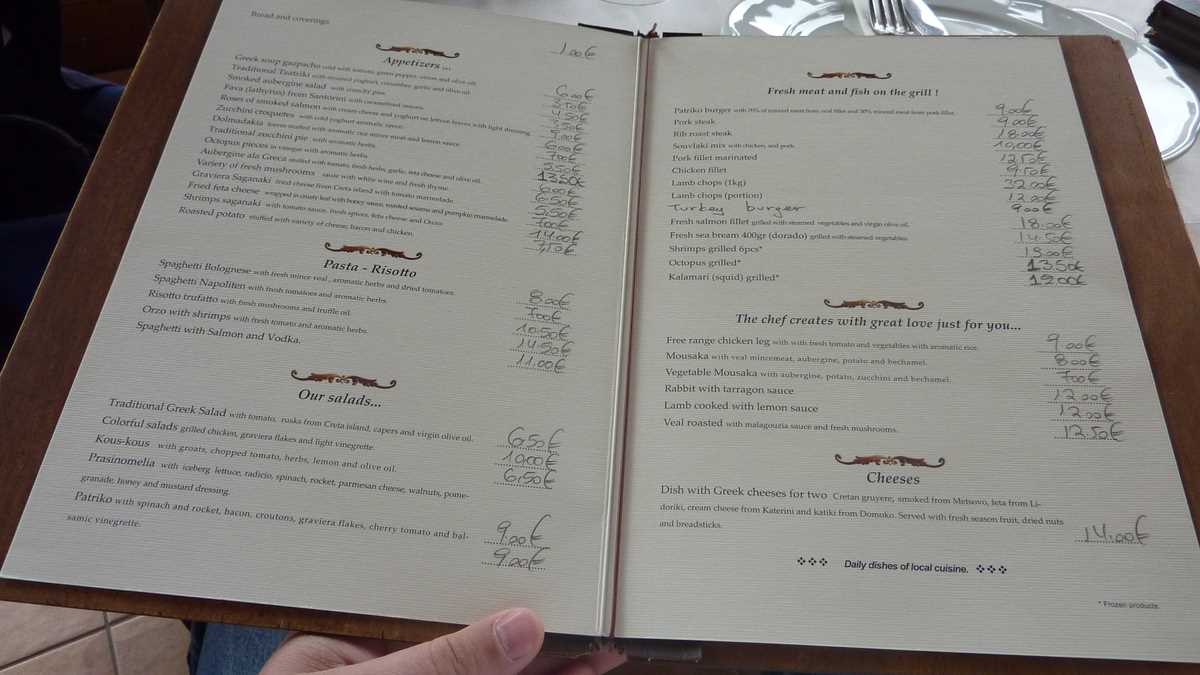 Bread and coverings 1.00€
Appetizers ...
Greek soup gaspacho cold with tomato, green pepper, onion and olive oil. 6.00€
Traditional Tzatziki with strained yoghurt, cucumber, garlic and olive oil. 3.50€
Smoked aubergine salad with crunchy pies. 4.50€
Fava (lathyrus) from Santorini with caramelised onions. 5.50€
Roses of smoked salmon with cream cheese and yoghurt on lemon leaves with light dressing. 9.00€
Zucchini croquettes with cold yoghurt aromatic sauce. 6.00€
Dolmadakia leaves stuffed with aromatic rice mince meat and lemon sauce. 7.00€
Traditional zucchini pie, with aromatic herbs. 5.50€
Octopus pieces in vinegar with aromatic herbs. 13.50€
Aubergine ala Greca stuffed with tomato, fresh herbs, garlic, feta cheese and olive oil. 6.00€
Variety of fresh mushrooms sauce with white wine and fresh thyme. 6.50€
Graviera Saganaki fried cheese from Creta island with tomato marmelade. 5.50€
Fried feta cheese wrapped in crusty leaf with honey sauce, roasted sesame and pumpkin marmelade. 7.00€
Shrimps saganaki with tomato sauce, fresh spices, feta cheese and Ouzo. 14.00€
Roasted potato stuffed with variety of cheese, bacon and chicken. 7,10€
Pasta - Risotto
Spaghetti Bolognese with fresh mince veal, aromatic herbs and dried tomatoes. 8.00€
Spaghetti Napoliten with fresh tomatoes and aromatic herbs. 7.00€
Risotto trufatto with fresh mushrooms and truffle oil. 10.50€
Orzo with shrimps with fresh tomato and aromatic herbs. 14.50€
Spaghetti with Salmon and Vodka. 11.00€
Our salads...
Traditional Greek Salad with tomato, rusks from Creta island, capers and virgin olive oil. 6,50€
Colorful salads grilled chicken, graviera flakes and light vinegrette. 10.00€
Kous-kous with groats, chopped tomato, herbs, lemon and olive oil. 6,50€
Prasinomelia with iceberg lettuce, radicio, spinach, rocket, parmesan cheese, walnuts, pome-
granade, honey and mustard dressing. 9.00€
Patriko with spinach and rocket, bacon, croutons, graviera flakes, cherry tomato and bal-
samic vinegrette. 9.00€
Fresh meat and fish on the grill !
Patriko burger with 70% of minced meat from veal fillet and 30% minced meat from pork fillet. 9,00€
Pork steak 9.00€
Rib roast steak 18.00€
Souvlaki mix with chicken, and pork 10,00€
Pork fillet marinated 12,50€
Chicken fillet 9.50€
Lamb chops (1kg) 32.00€
Lamb chops (portion) 12.00€
Turkey burger 9.00€
Fresh salmon fillet grilled with steamed vegetables and virgin olive oil. 18.00€
Fresh sea bream 400gr (dorado) grilled with steamed vegetables 14.50€
Shrimps grilled 6pcs* 19.00€
Octopus grilled* 13.50€
Kalamari (squid) grilled* 12.00€
The chef creates with great love just for you...
Free range chicken leg with with fresh tomato and vegetables with aromatic rice. 9.00€
Mousaka with veal mincemeat, aubergine, potato and bechamel. 8.00€
Vegetable Mousaka with aubergine, potato, zucchini and bechamel. 7.00€
Rabbit with tarragon sauce 12.00€
Lamb cooked with lemon sauce 12.00€
Veal roasted with malagouzia sauce and fresh mushrooms. 12.50€
Cheeses
Dish with Greek cheeses for two Cretan gruyere, smoked from Metsovo, feta from Li-
doriki, cream cheese from Katerini and katiki from Domoko. Served with fresh season fruit, dried nuts
and breadsticks. 14.00€
Daily dishes of local cuisine.
* Frozen products.